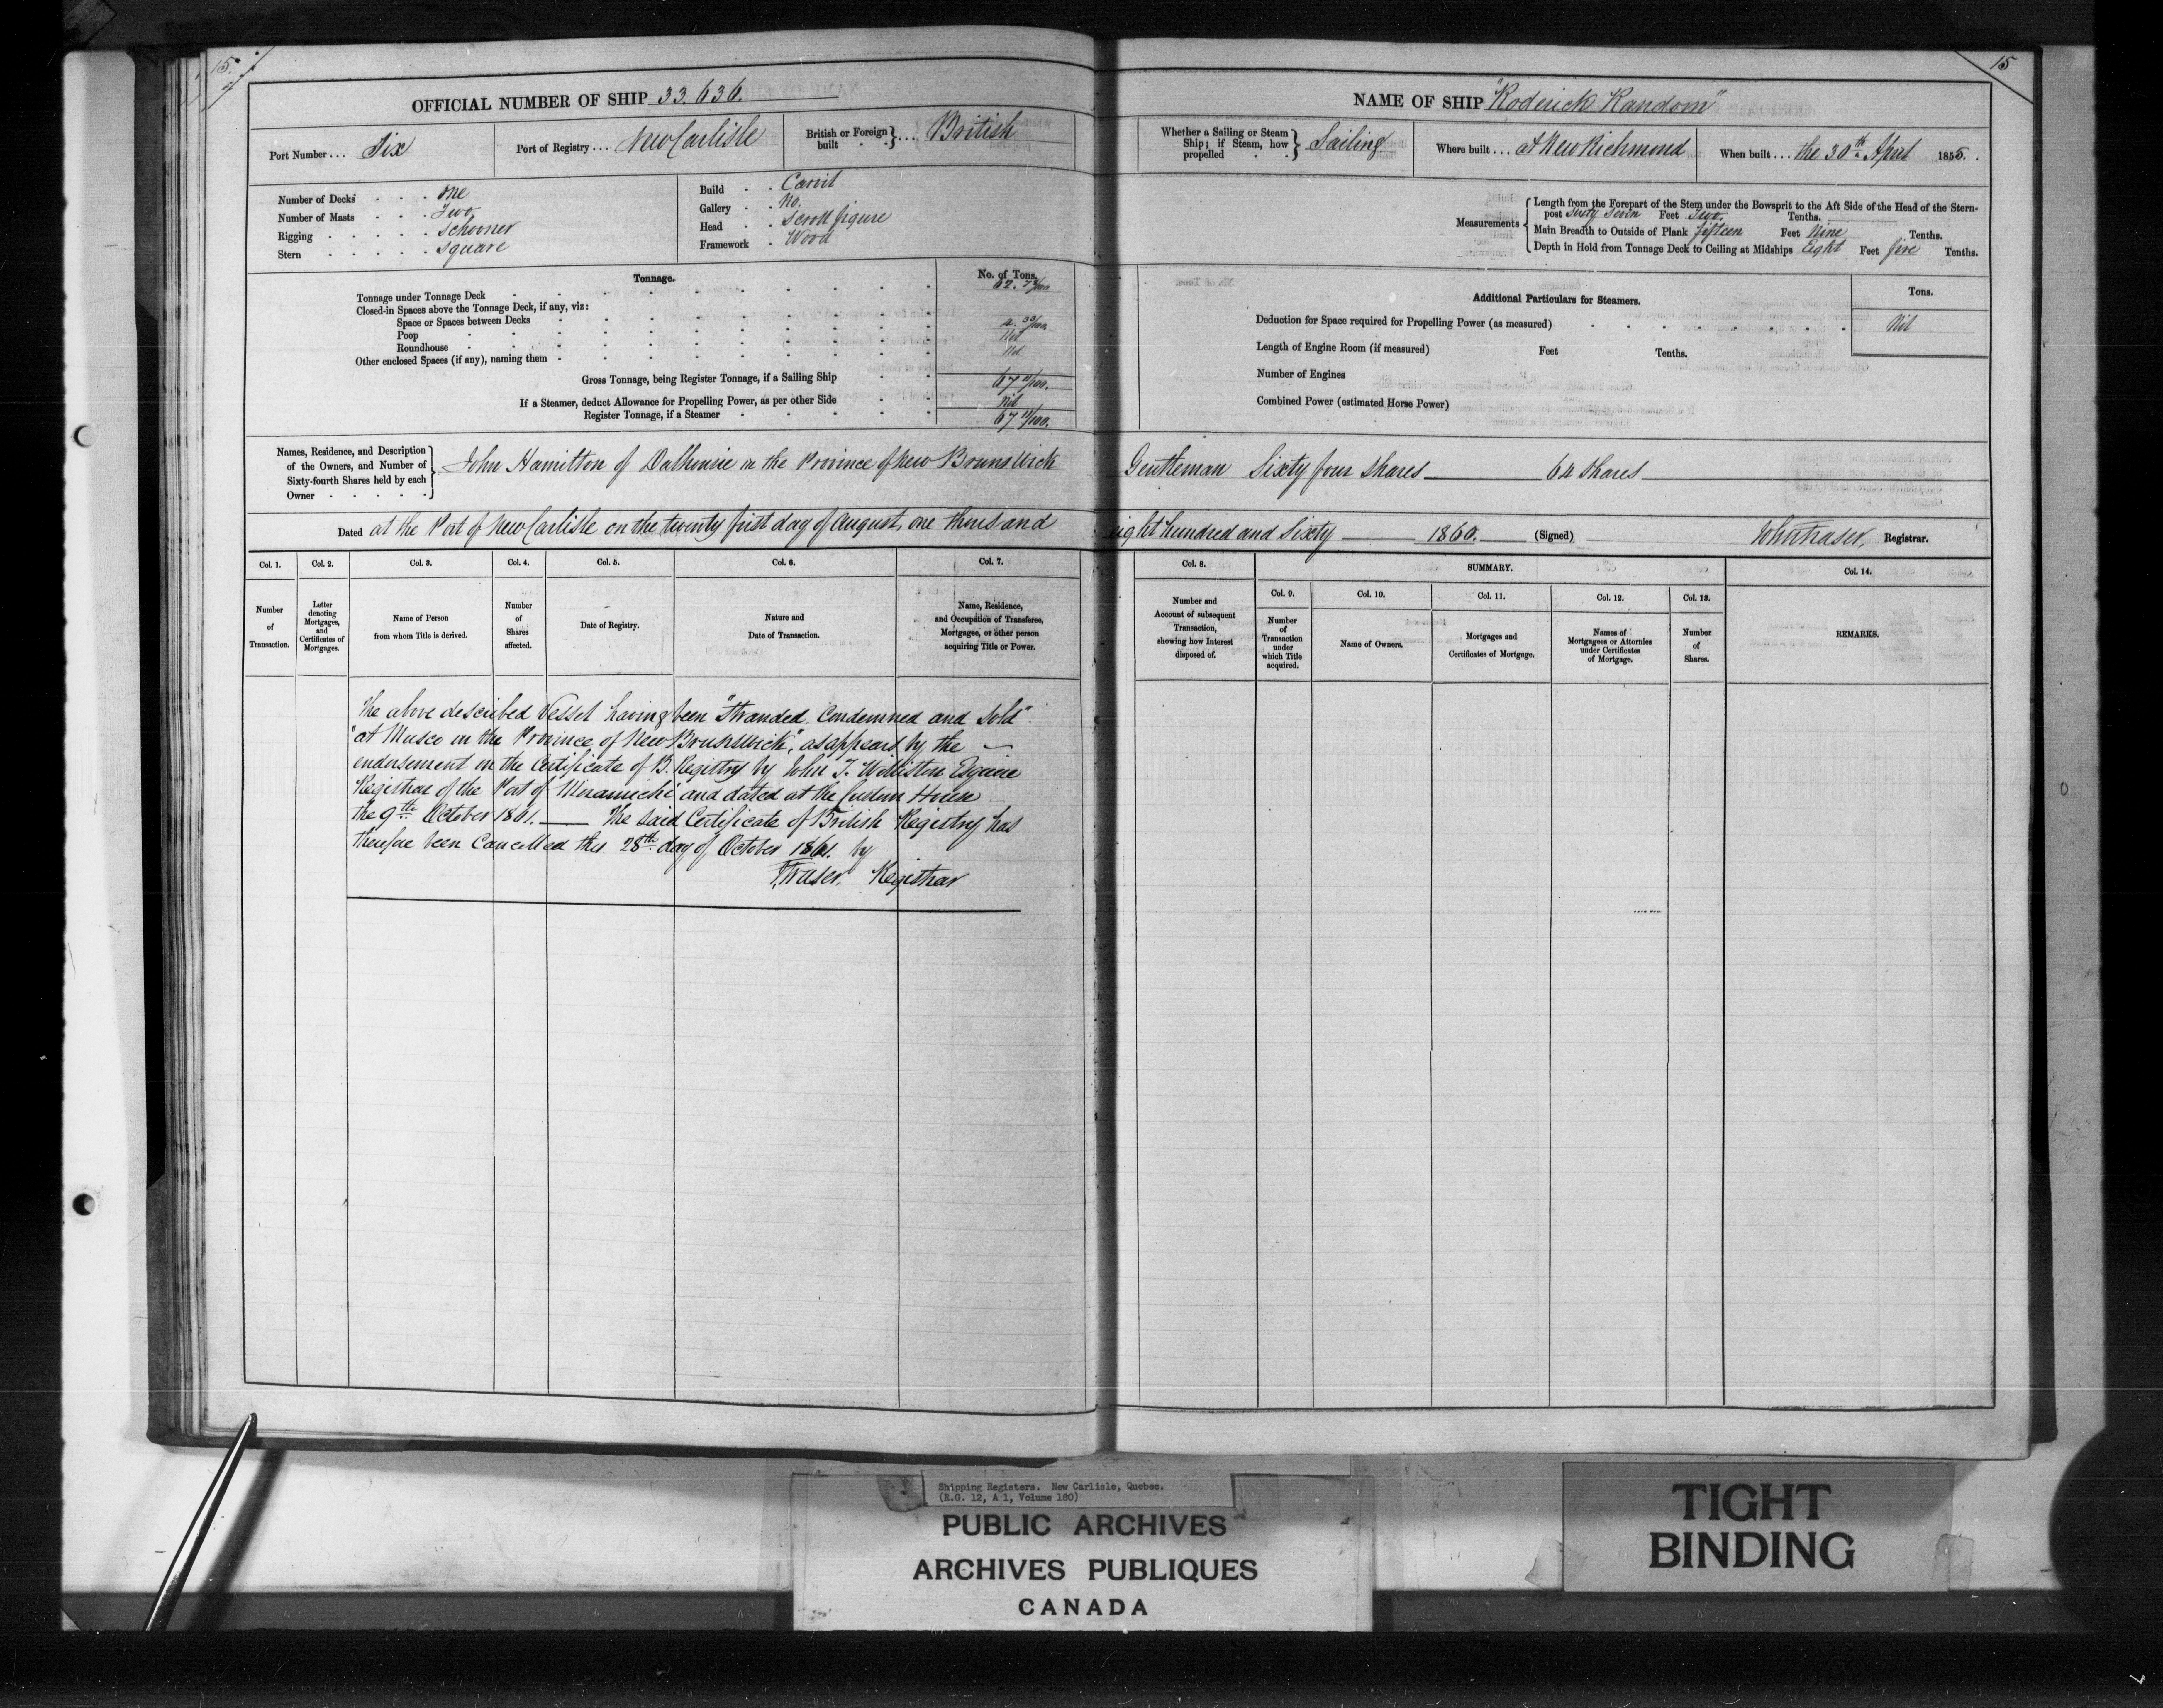 15
OFFICIAL NUMBER OF SHIP 33.636.
Port Number ... Six
Port of Registry ... New Carlisle
British or Foreign built } ... British
Number of Decks . . . one
Number of Masts . . . Two
Rigging . . . . . Schooner
Stern . . . . . square
Build . . Carvil
Gallery . . No.
Head . . Scroll figure
Framework . Wood
Tonnage.
No. of Tons.
Tonnage under Tonnage Deck 62.
Closed-in Spaces above the Tonnage Deck, if any, viz:
Space or Spaces between Decks
Poop
Roundhouse
Other enclosed Spaces (if any), naming them
Gross Tonnage, being Register Tonnage, if a Sailing Ship 67 11/100.
If a Steamer, deduct Allowance for Propelling Power, as per other Side Nil
Register Tonnage, if a Steamer 67 11/100.
15
NAME OF SHIP "Roderick Random"
Whether a Sailing or Steam Ship; if Steam, how propelled } Sailing
Where built ... at New Richmond
When built ... the 30th April 1855.
Measurements
Length from the Forepart of the Stem under the Bowsprit to the Aft Side of the Head of the Stern-
post Sixty Seven Feet Two Tenths.
Main Breadth to Outside of Plank fifteen Feet Nine Tenths.
Depth in Hold from Tonnage Deck to Ceiling at Midships Eight Feet five Tenths.
Additional Particulars for Steamers.
Tons.
Deduction for Space required for Propelling Power (as measured) Nil
Length of Engine Room (if measured) Feet Tenths.
Number of Engines
Combined Power (estimated Horse Power)
Names, Residence, and Description
of the Owners, and Number of
Sixty-fourth Shares held by each
Owner
John Hamilton of Dalhousie in the Province of New Brunswick Gentleman Sixty four Shares 64 Shares
Dated at the Port of New Carlisle on the twenty first day of August, one thousand eight hundred and Sixty 1860. (Signed) John Fraser, Registrar.
Col. 1.
Number
of
Transaction.
Col. 2.
Letter
denoting
Mortgages,
and
Certificates of
Mortgages.
Col. 3.
Name of Person
from whom Title is derived.
Col. 4.
Number
of
Shares
affected.
Col. 5.
Date of Registry.
Col. 6.
Nature and
Date of Transaction.
Col. 7.
Name, Residence,
and Occupation of Transferee,
Mortgagee, or other person
acquiring Title or Power.
Col. 8.
Number and
Account of subsequent
Transaction,
showing how Interest
disposed of.
SUMMARY.
Col. 9.
Number
of
Transaction
under
which Title
acquired.
Col. 10.
Name of Owners.
Col. 11.
Mortgages and
Certificates of Mortgage.
Col. 12.
Names of
Mortgagees or Attornies
under Certificates
of Mortgage.
Col. 13.
Number
of
Shares.
Col. 14.
REMARKS.
The above described Vessel having been "Stranded Condemned and Sold"
"at Musco in the Province of New Brunswick", as appears by the
endorsement on the Certificate of B. Registry by John T. Williston Esquire
Registrar of the Port of Miramichi and dated at the Custom House
the 9th October 1861. The Said Certificate of British Registry has
therefore been Cancelled this 28th day of October 1861. by
J. Fraser. Registrar
Shipping Registers. New Carlisle, Quebec.
(R.G. 12, A 1, Volume 180)
PUBLIC ARCHIVES
ARCHIVES PUBLIQUES
CANADA
TIGHT
BINDING